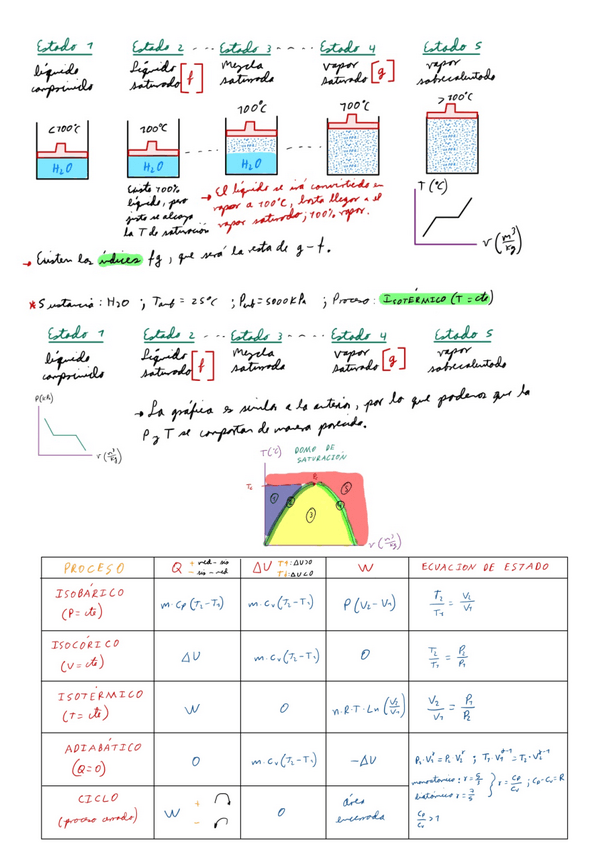 Estado 1 Estado 2 --- Estado 3 ---- Estado 4 Estado 5
líquido comprimido
Líquido saturado [f]
Mezcla saturada
vapor saturado [g]
vapor sobrecalentado
<100°C 100°C 100°C 100°C >100°C
H₂O H₂O H₂O
Existe 100%
líquido, pero
justo se alcanza
la T de saturación
→ El líquido se irá convirtiendo en
vapor a 100°C, hasta llegar a el
vapor saturado; 100% vapor.
T (°C)
v (m³/kg)
→ Existen los índices fg, que será la resta de g-f.
* Sustancia: H₂O ; Tamb = 25°C ; Pamb = 5000 kPa ; Proceso: ISOTÉRMICO (T = cte)
Estado 1 Estado 2 --- Estado 3 ---- Estado 4 Estado 5
líquido comprimido
Líquido saturado [f]
Mezcla saturada
vapor saturado [g]
vapor sobrecalentado
→ La gráfica es similar a la anterior, por lo que podemos que la
P y T se comportan de manera parecida.
v (m³/kg)
T(°C) DOMO DE
SATURACIÓN
1 2 3 4 5
v (m³/kg)
PROCESO Q + red-sis - sis-red ΔU T↑:ΔU>0 T↓:ΔU<0 W ECUACIÓN DE ESTADO
ISOBÁRICO
(P=cte)
m·Cp(T₂-T₁) m·Cv(T₂-T₁) P(V₂-V₁) T₂/T₁ = V₂/V₁
ISOCÓRICO
(V=cte)
ΔU m·Cv(T₂-T₁) 0 T₂/T₁ = P₂/P₁
ISOTÉRMICO
(T=cte)
W 0 n·R·T·Ln(V₂/V₁) V₂/V₁ = P₁/P₂
ADIABÁTICO
(Q=0)
0 m·Cv(T₂-T₁) -ΔU
P₁·V₁^γ = P₂·V₂^γ ; T₁·V₁^γ-1 = T₂·V₂^γ-1
monoatómico: γ = 5/3
biatómico: γ = 7/5
γ = Cp/Cv ; Cp-Cv=R
Cp/Cv >1
CICLO
(proceso cerrado)
W + - 0 área
encerrada